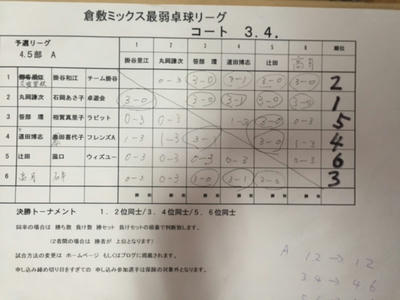 倉敷ミックス最弱卓球リーグ
コート 3.4.
予選リーグ
4.5部 A
1 2 3 4 5 6
掛谷里江 丸岡謙次 笹部 環 道田博志 辻田 高月 順位
1 掛谷和江 チーム掛谷 0-3 3-0 3-1 3-0 3-0 2
2 丸岡謙次 石岡あさ子 卓遊会 3-0 3-0 3-1 3-0 3-0 1
3 笹部 環 相賀真里子 ラビット 0-3 0-3 1-3 3-0 0-3 5
4 道田博志 春田喜代子 フレンズA 1-3 1-3 3-1 3-0 1-3 4
5 辻田 皿口 ウィズユー 0-3 0-3 0-3 0-3 0-3 6
6 高月 0-3 0-3 3-0 3-1 3
決勝トーナメント 1.2位同士/3.4位同士/5.6位同士
同率の場合は 勝ち数 負け数 勝セット 負けセットの順番で判断致します。
(2者間の場合は 勝者が 上位となります)
試合方法の変更は ホームページ もしくはブログに掲載します。
申し込み締め切り日をすぎての 申し込み参加選手は保険の対象外となります。
A 1.2 → 1.2
3.4 → 4.6